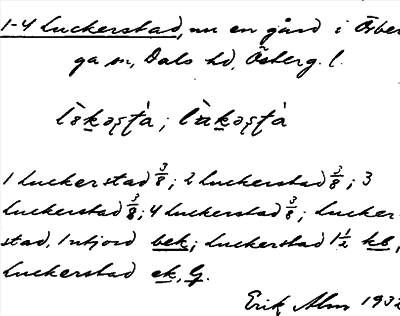 1-4 Luckerstad, nu en gård i Örber
ga sn, Dals hd, Österg. l.
1 Luckerstad 3/8; 2 Luckerstad 3/8; 3
Luckerstad 3/8; 4 Luckerstad 3/8; Lucker-
stad, 1 utjord bek; Luckerstad 1 1/2 kb,
Luckerstad ek, G.
Erik Alm 1932